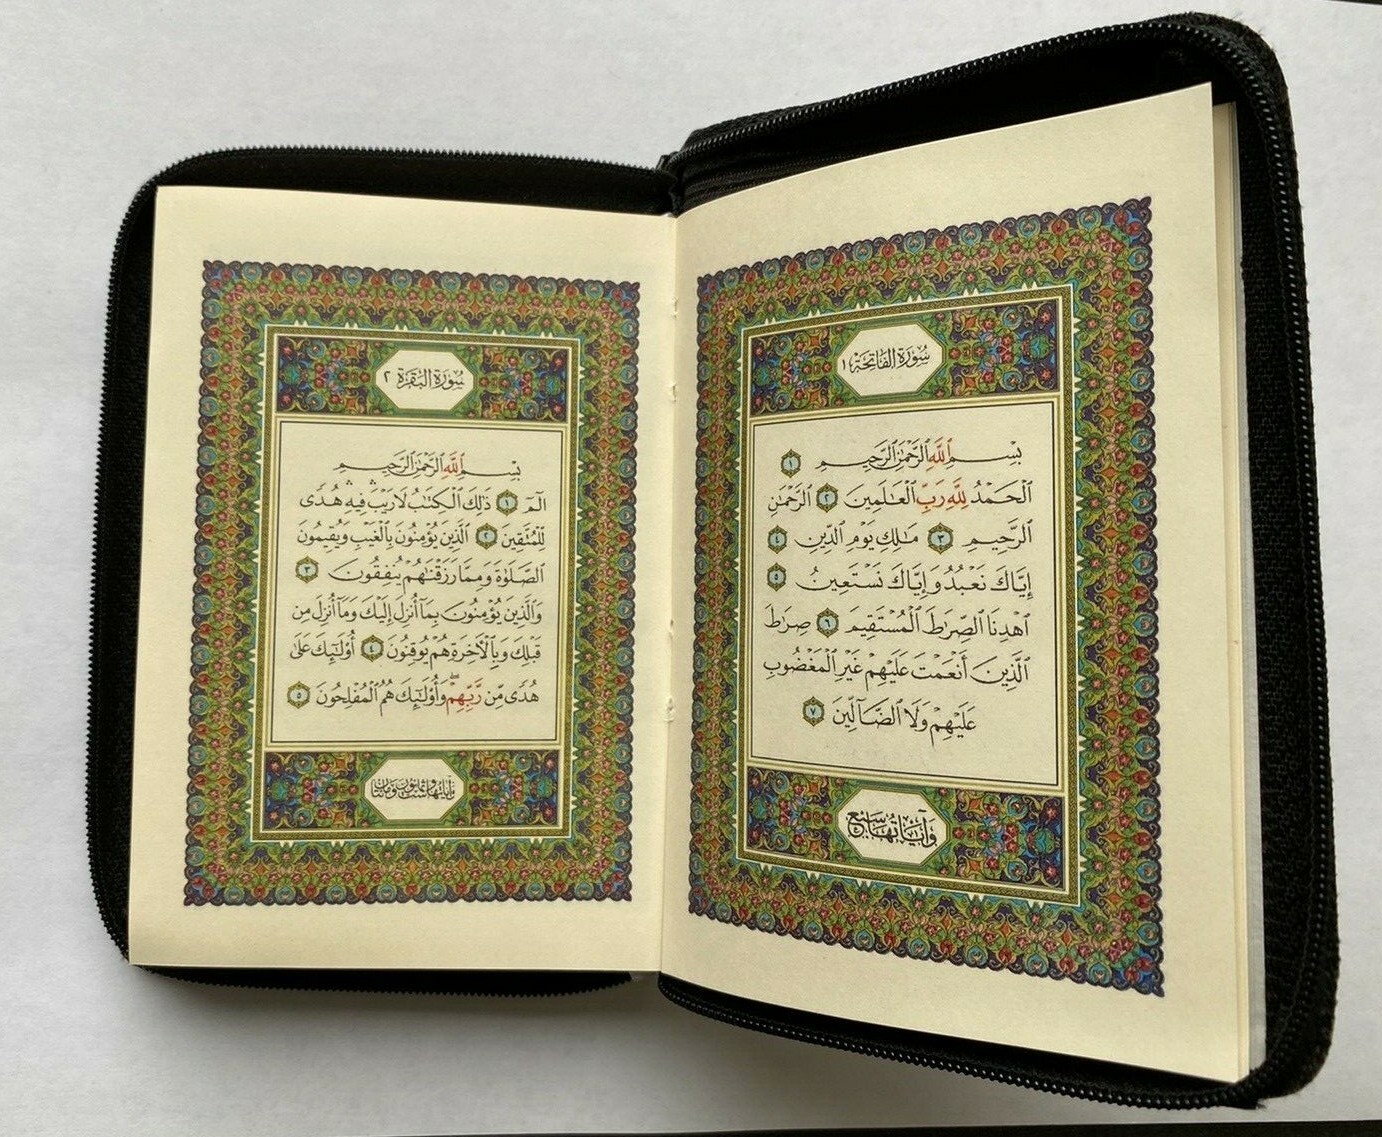 سُورَةُ الفَاتِحَةِ ١
بِسْمِ ٱللَّهِ ٱلرَّحْمَٰنِ ٱلرَّحِيمِ ١
ٱلْحَمْدُ لِلَّهِ رَبِّ ٱلْعَٰلَمِينَ ٢ ٱلرَّحْمَٰنِ
ٱلرَّحِيمِ ٣ مَٰلِكِ يَوْمِ ٱلدِّينِ ٤
إِيَّاكَ نَعْبُدُ وَإِيَّاكَ نَسْتَعِينُ ٥
ٱهْدِنَا ٱلصِّرَٰطَ ٱلْمُسْتَقِيمَ ٦ صِرَٰطَ
ٱلَّذِينَ أَنْعَمْتَ عَلَيْهِمْ غَيْرِ ٱلْمَغْضُوبِ
عَلَيْهِمْ وَلَا ٱلضَّآلِّينَ ٧
وَآيَاتُهَا سَبْعٌ
سُورَةُ البَقَرَةِ ٢
بِسْمِ ٱللَّهِ ٱلرَّحْمَٰنِ ٱلرَّحِيمِ
الٓمٓ ١ ذَٰلِكَ ٱلْكِتَٰبُ لَا رَيْبَ ۛ فِيهِ ۛ هُدًى
لِّلْمُتَّقِينَ ٢ ٱلَّذِينَ يُؤْمِنُونَ بِٱلْغَيْبِ وَيُقِيمُونَ
ٱلصَّلَوٰةَ وَمِمَّا رَزَقْنَٰهُمْ يُنفِقُونَ ٣
وَٱلَّذِينَ يُؤْمِنُونَ بِمَآ أُنزِلَ إِلَيْكَ وَمَآ أُنزِلَ مِن
قَبْلِكَ وَبِٱلْأَخِرَةِ هُمْ يُوقِنُونَ ٤ أُو۟لَٰٓئِكَ عَلَىٰ
هُدًى مِّن رَّبِّهِمْ ۖ وَأُو۟لَٰٓئِكَ هُمُ ٱلْمُفْلِحُونَ ٥